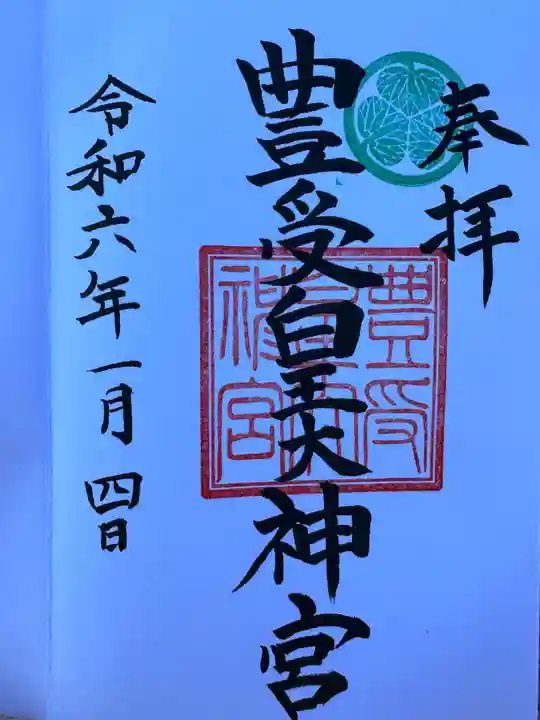 奉拝
豊受皇大神宮
豊受
皇大
神宮
令和六年一月四日